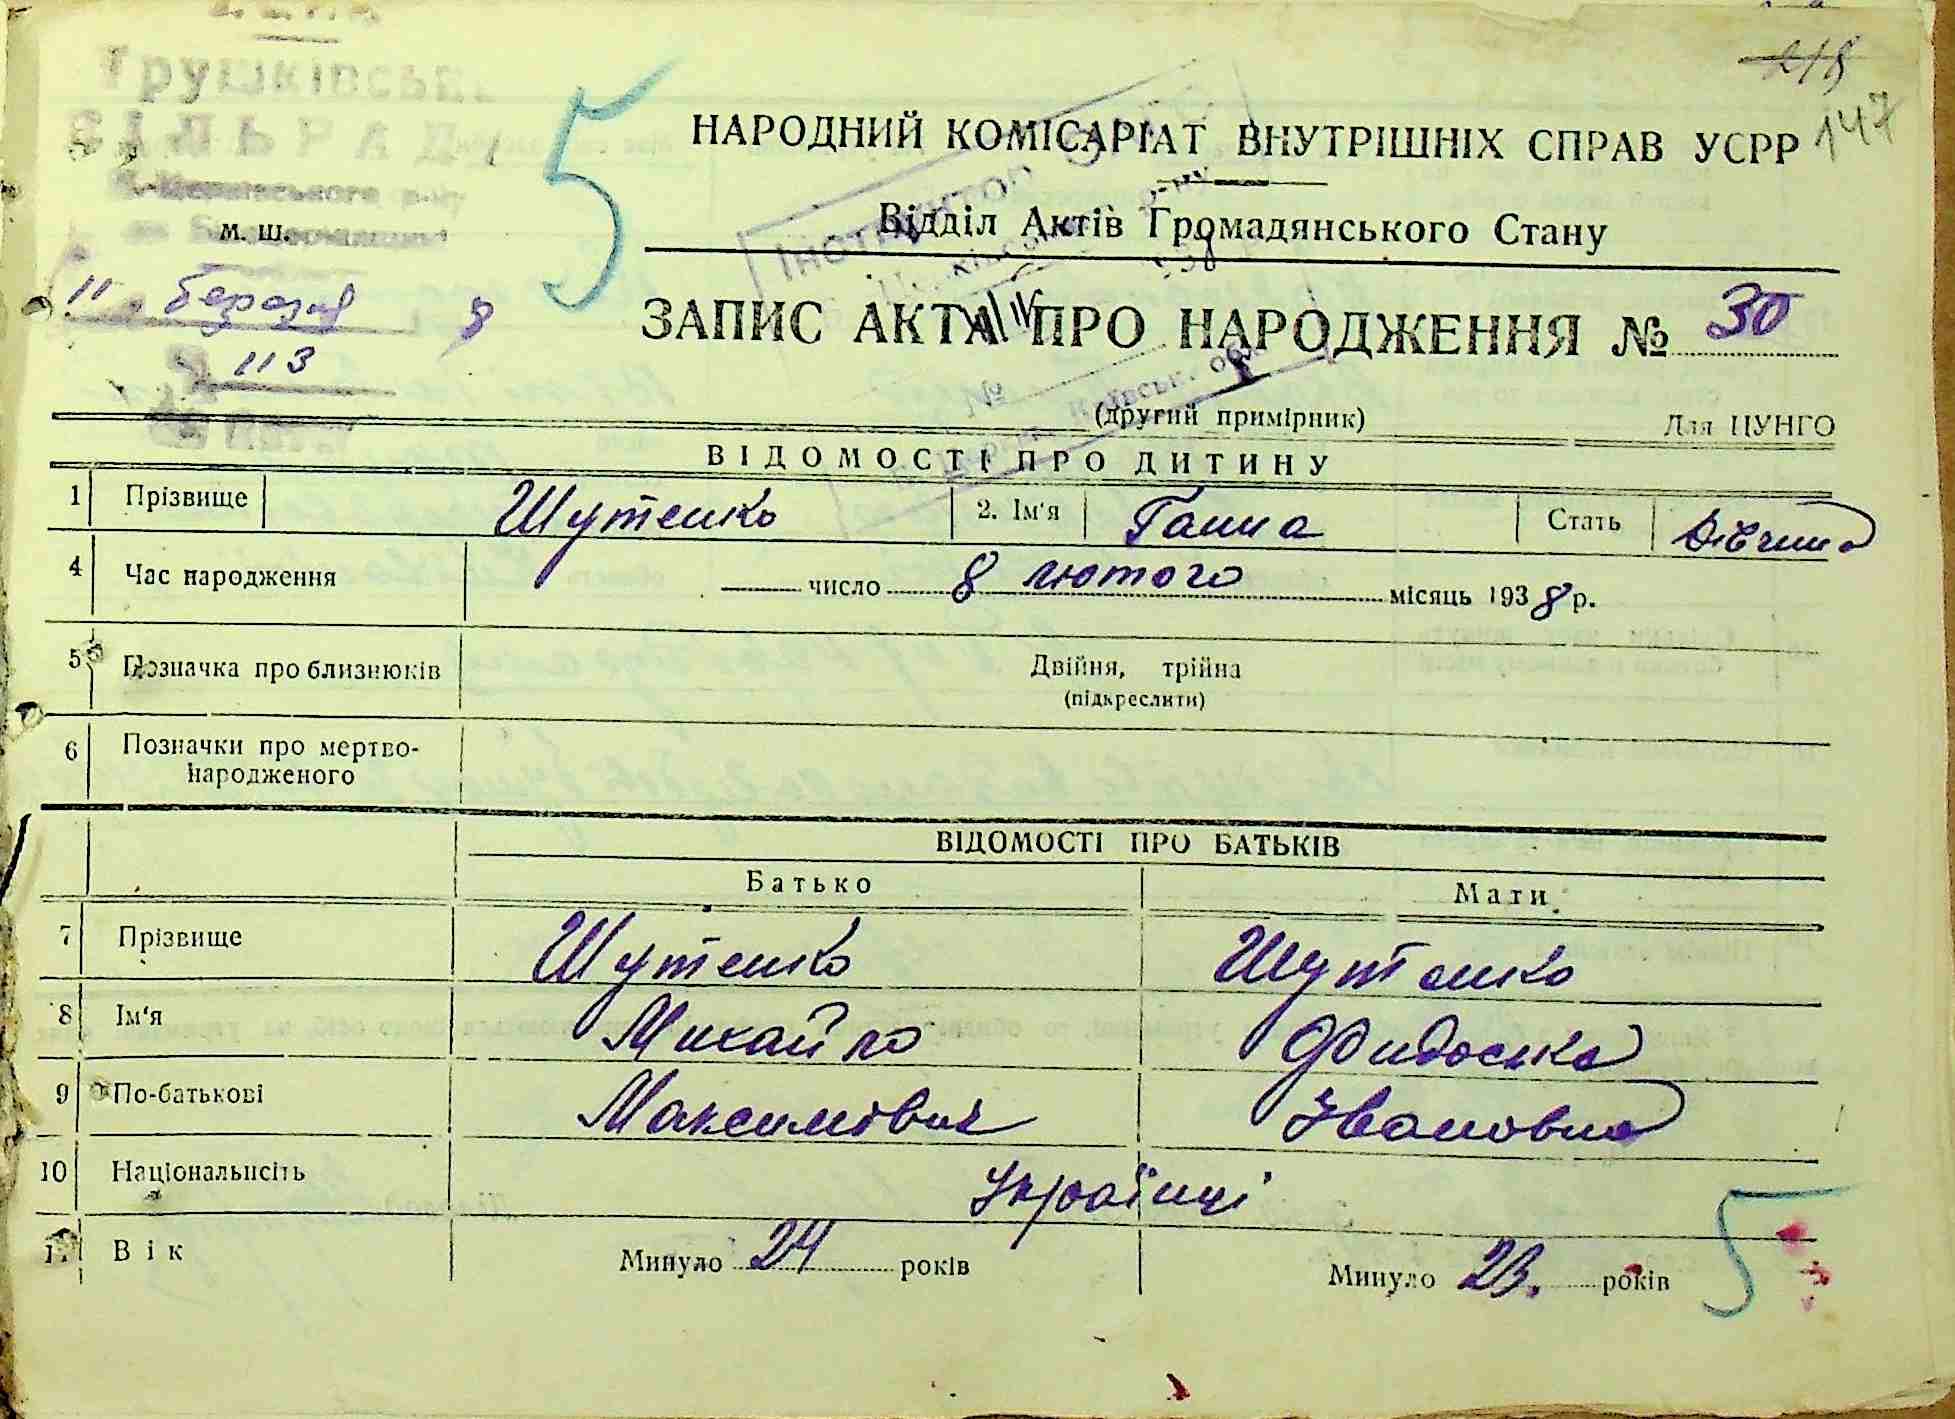 218
147
Грушківськ
СІЛЬРАДА
НАРОДНИЙ КОМІСАРІАТ ВНУТРІШНІХ СПРАВ УСРР
м. ш.
Відділ Актів Громадянського Стану
11 березня 8
113
5
ЗАПИС АКТА ПРО НАРОДЖЕННЯ № 30
(другий примірник) Для ЦУНГО
ВІДОМОСТІ ПРО ДИТИНУ
1 Прізвище Шутенко 2. Ім'я Ганна Стать Дівчина
4 Час народження число 8 лютого місяць 1938 р.
5 Позначка про близнюків Двійня, трійна
(підкреслити)
6 Позначки про мертво-
народженого
ВІДОМОСТІ ПРО БАТЬКІВ
Батько Мати
7 Прізвище Шутенко Шутенко
8 Ім'я Михайло Фидоська
9 По-батькові Максимович Івановна
10 Національність Українці
11 Вік Минуло 24 років Минуло 23. років
5